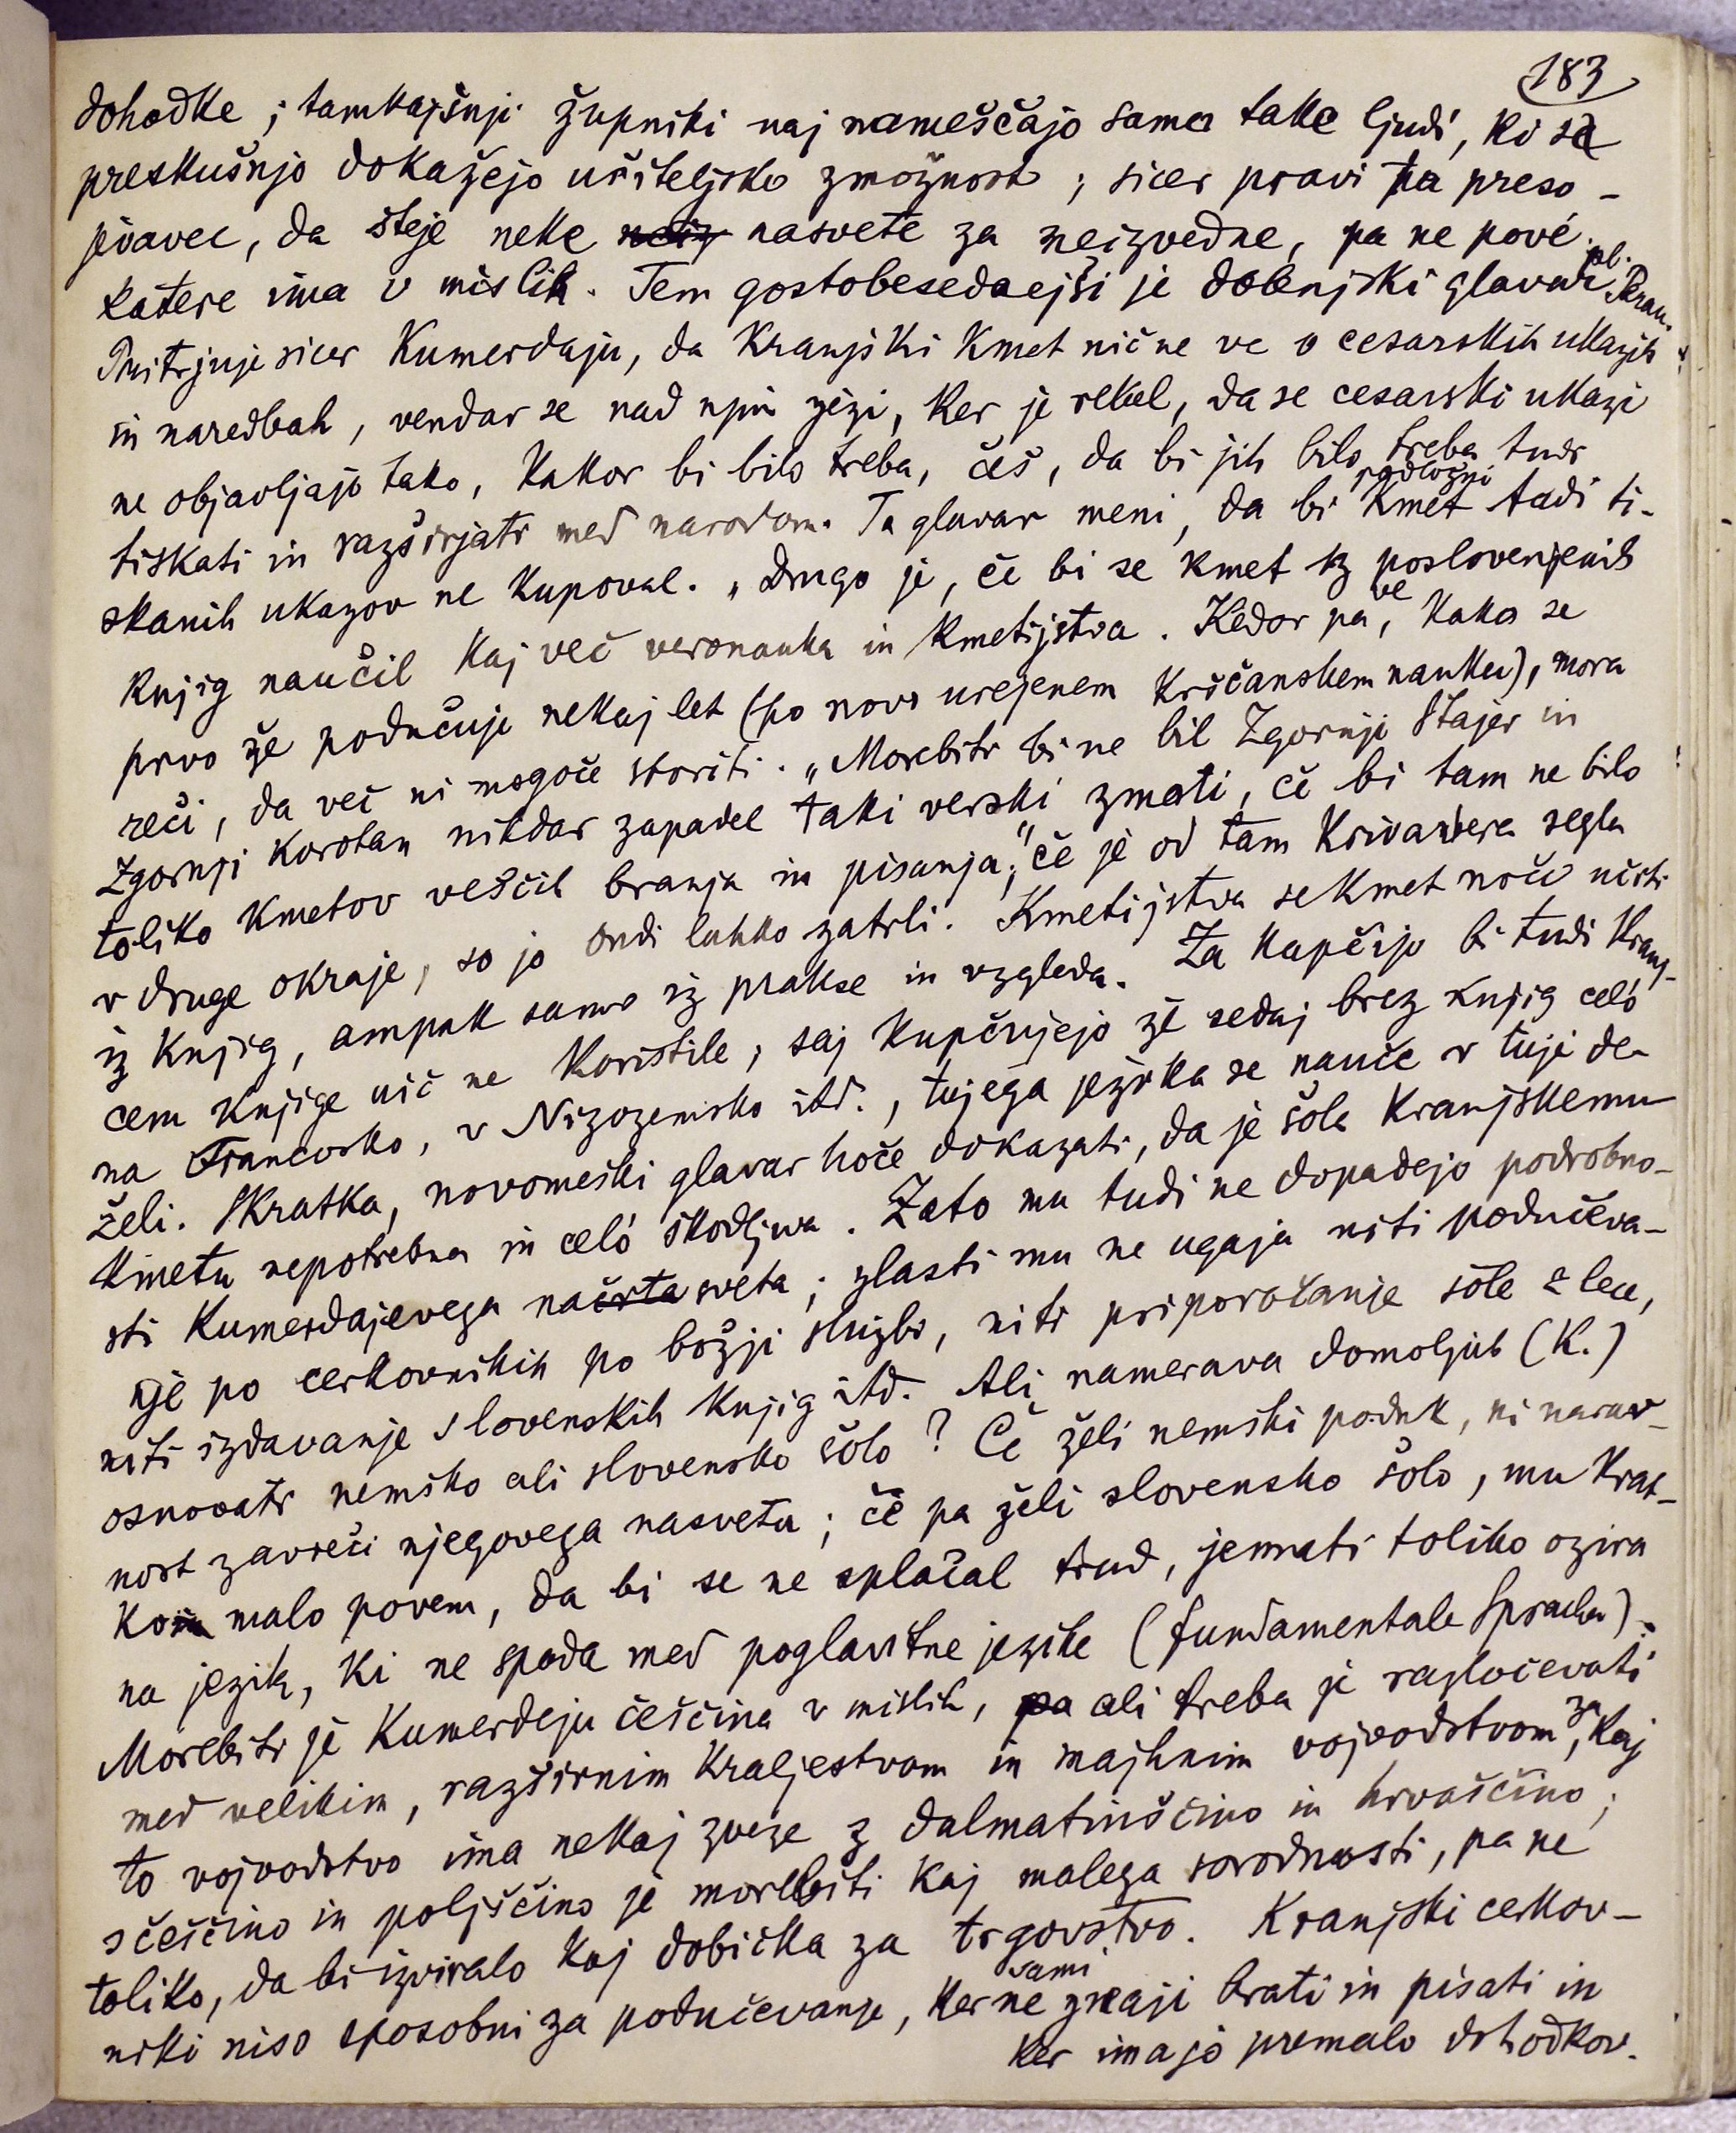 183
dohodke; tamkajšnji župniki naj nameščajo samo take ljudi, ki s
preskušnjo dokažejo učiteljsko zmožnost; sicer pravi ta preso-
jevavec, da šteje neke neiz nasvete za neizvedne, pa ne pové,
katere ima v mislih. Tem gostobesednejši je dolenjski glavar pl.
Pritrjuje sicer Kumerdaju, da kranjski kmet nič ne ve o cesarskih ukazih
in naredbah, vendar se nad njim jezi, ker je rekel, da se cesarski ukazi
ne objavljajo tako, kakor bi bilo treba, češ, da bi jih bilo treba tudi
tiskati in razširjati med narodom. Ta glavar meni, da bi podložni kmet tudi ti-
skanih ukazov ne kupoval. „Drugo je, če bi se kmet iz poslovenjenih
knjig naučil kaj več veronauka in kmetijstva. Kedor pa ve, kako se
prvo že podučuje nekaj let (po novo urejenem krščanskem nauku), mora
reči, da več ni mogoče storiti. „Morebiti bi ne bil Zgornji Štajer in
Zgornji Korotan nikdar zapadel taki verski zmoti, če bi tam ne bilo
toliko kmetov veščih branja in pisanja;" če je od tam krivavera segla
v druge okraje, so jo ondi lahko zatrli. Kmetijstva se kmet noče učiti
iz knjig, ampak samo iz prakse in vzgleda. Za kupčijo bi tudi Kranj-
cem knjige nič ne koristile, saj kupčujejo že sedaj brez knjig celó
na Francosko, v Nizozemsko itd., tujega jezika se nauče v tuji de-
želi. Skratka, novomeški glavar hoče dokazati, da je šola kranjskemu
kmetu nepotrebna in celó škodljiva. Zato mu tudi ne dopadejo podrobno-
sti Kumerdajevega načrta sveta; zlasti mu ne ugaja niti podučeva-
nje po cerkovnikih po božji službi, niti priporočanje šole z lece,
niti izdavanje slovenskih knjig itd. Ali namerava domoljub (K.)
osnovati nemško ali slovensko šolo? Če želi nemški poduk, ni narav-
nost zavreči njegovega nasveta; če pa želi slovensko šolo, mu krat-
ko malo povem, da bi se ne splačal trud, jemati toliko ozira
na jezik, ki ne spada med poglavitne jezike (fundamentale Sprachen).
Morebiti je Kumerdeju češčina v mislih, pa ali treba je razločevati
med velikim, razširnim kraljestvom in majhnim vojvodstvom, kaj za
to vojvodstvo ima nekaj zveze z dalmatinščino in hrvaščino;
s češčino in poljščino je morebiti kaj malega sorodnosti, pa ne
toliko, da bi izviralo kaj dobička za trgovstvo. Kranjski cerkov-
niki niso sposobni za podučevanje, ker sami ne znajo brati in pisati in
ker imajo premalo dohodkov.